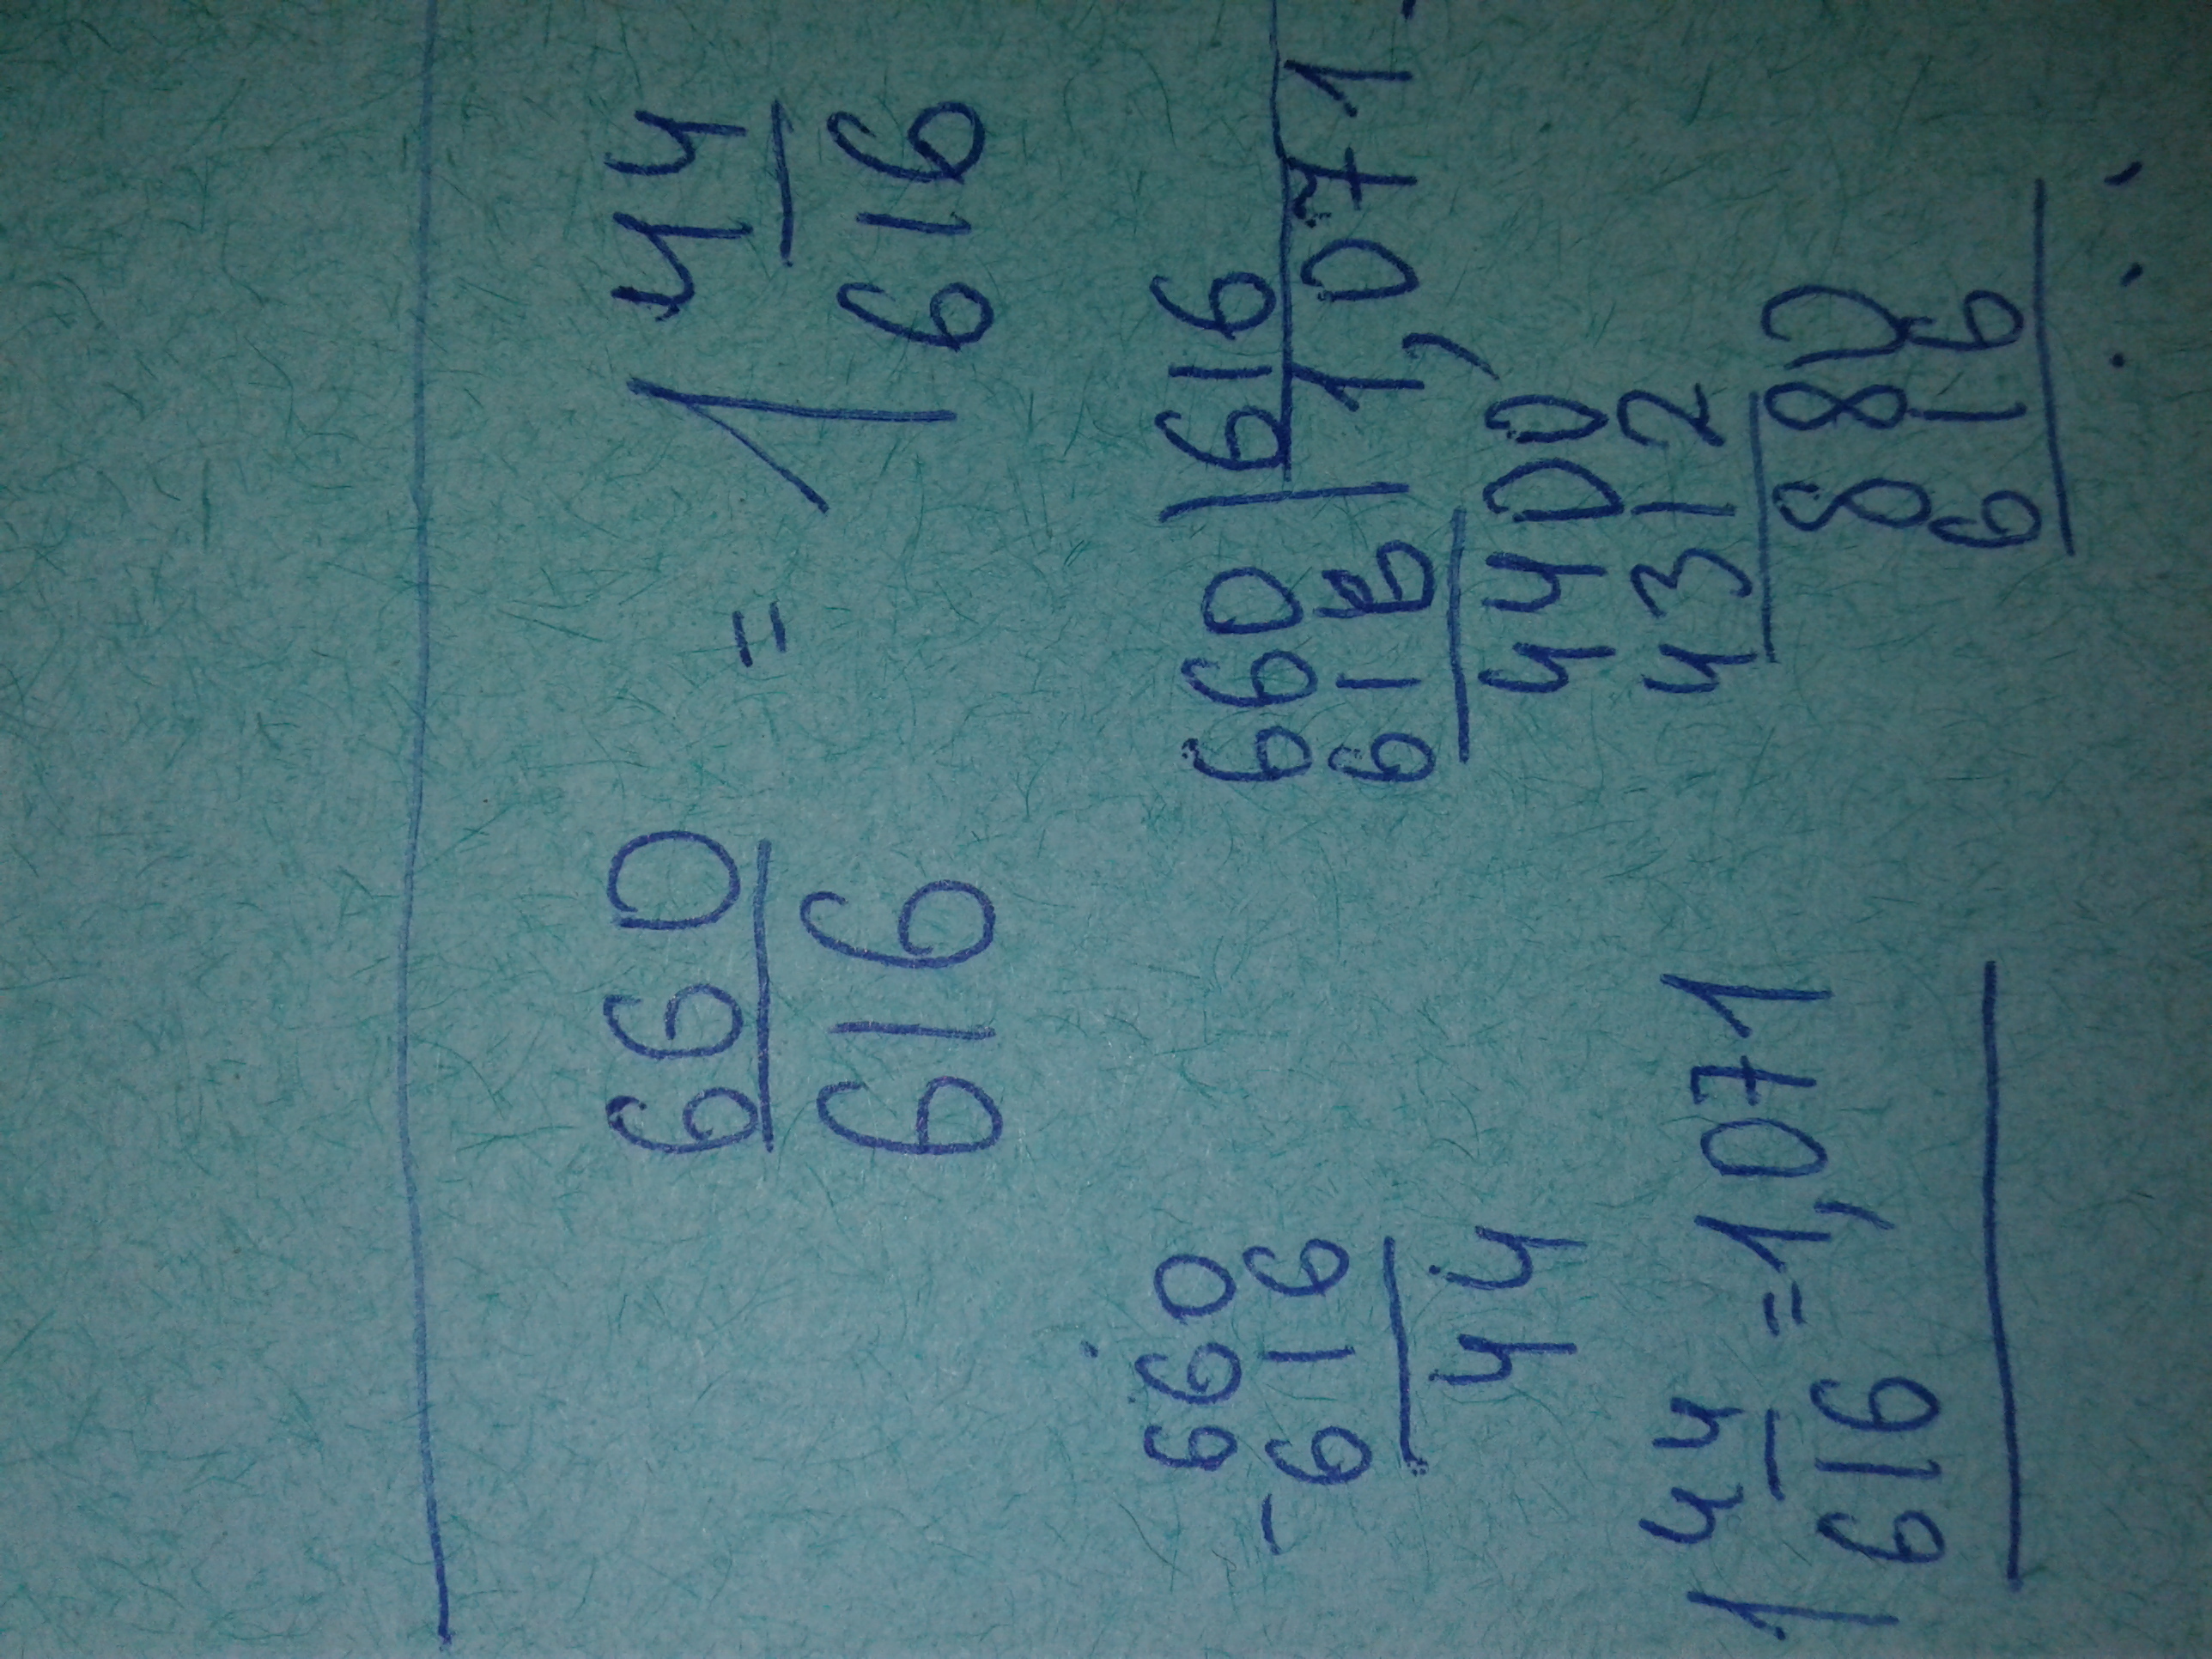 660 = 1 44
616 616
660
-616
44
1 44 = 1,071
616
660 | 616
616 | 1,071
4400
4312
880
616
...